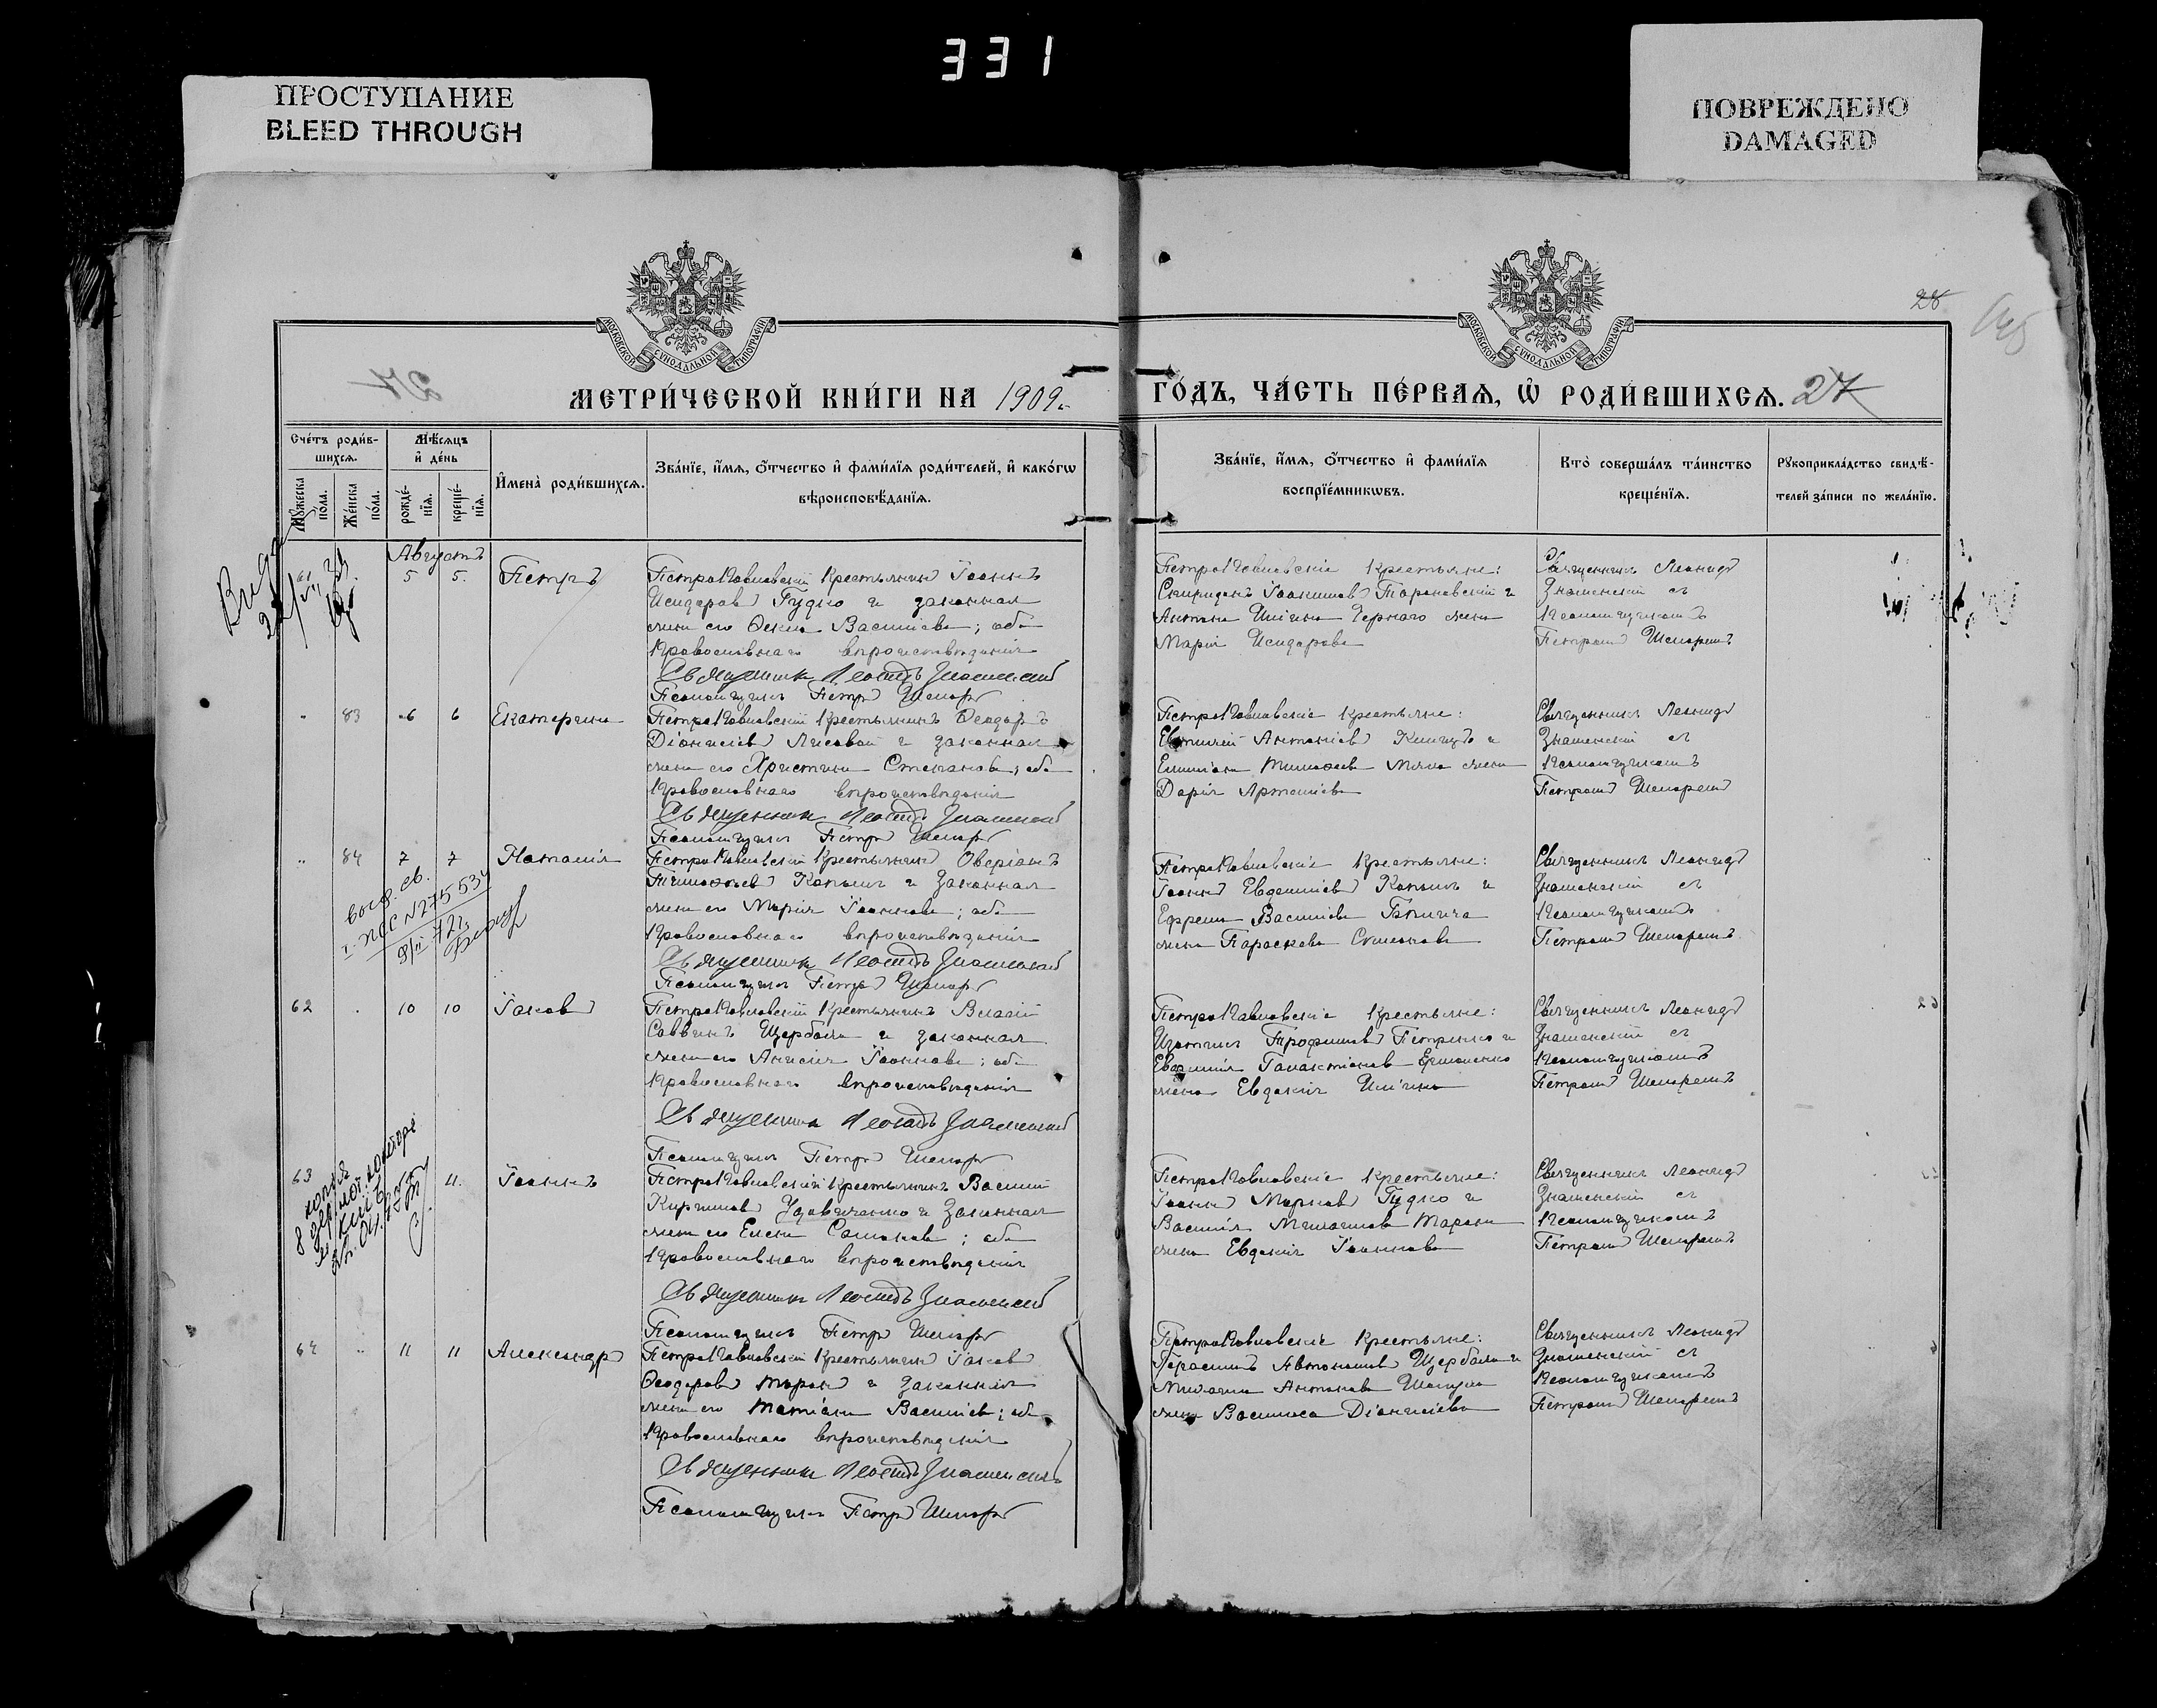 331
ПРОСТУПАНИЕ
BLEED THROUGH
ПОВРЕЖДЕНО
DAMAGED
МОСКОВСКОЙ СѴНОДАЛЬНОЙ ТИПОГРАФІИ
МОСКОВСКОЙ СѴНОДАЛЬНОЙ ТИПОГРАФІИ
28
МЕТРИ́ЧЕСКОЙ КНИ́ГИ НА 1909 г.
ГО́ДЪ, ЧА́СТЬ ПЕ́РВАѦ, Ѡ҆ РОДИ́ВШИХСѦ. 27
Сче́тъ роди́в-
шихсѧ.
Мѣ́сѧцъ
и҆ де́нь
Мꙋ́жеска
по́ла.
Же́нска
по́ла.
рожде́-
нїѧ.
креще́-
нїѧ.
И҆мена̀ роди́вшихсѧ.
Зва́нїе, и҆́мѧ, ѻ҆́тчество и҆ фами́лїѧ роди́телей, и҆ како́гѡ
вѣроисповѣ́данїѧ.
Зва́нїе, и҆́мѧ, ѻ҆́тчество и҆ фами́лїѧ
воспрїе́мникѡвъ.
Кто̀ соверша́лъ та́инство
креще́нїѧ.
Рꙋкоприкла́дство свидѣ́-
телей за́писи по жела́нїю.
Августъ
61 5 5. Петръ
Петропавловскій крестьянинъ Іоаннъ
Исидоровъ Гудко и законная
жена его Ѳекла Васильева; оба
православнаго вѣроисповѣданія
Священникъ Леонидъ Знаменскій
Псаломщикъ Петръ Шепаръ
Петропавловскіе крестьяне:
Спиридонъ Іоакимовъ Тарановскій и
Антона Ильина Чернаго жена
Марія Исидорова
Священникъ Леонидъ
Знаменскій съ
псаломщикомъ
Петромъ Шепаремъ
83 6 6 Екатерина
Петропавловскій крестьянинъ Ѳеодоръ
Діонисіевъ Лисовой и законная
жена его Христина Степанова; оба
православнаго вѣроисповѣданія
Священникъ Леонидъ Знаменскій
Псаломщикъ Петръ Шепаръ
Петропавловскіе крестьяне:
Евтихій Антоніевъ
жена
Дарія Артеміева
Священникъ Леонидъ
Знаменскій съ
псаломщикомъ
Петромъ Шепаремъ
84 7 7 Наталія
Петропавловскій крестьянинъ Оверіанъ
Тимоѳеевъ Копыль и законная
жена его Марія Іоаннова; оба
православнаго вѣроисповѣданія
Священникъ Леонидъ Знаменскій
Псаломщикъ Петръ Шепаръ
Петропавловскіе крестьяне:
Іоаннъ Евдокимовъ Копыль и
Ефрема Васильева
жена Параскева Симонова
Священникъ Леонидъ
Знаменскій съ
псаломщикомъ
Петромъ Шепаремъ
62 10 10 Іаковъ
Петропавловскій крестьянинъ Власій
Саввинъ Щербань и законная
жена его Анисія Іоаннова; оба
православнаго вѣроисповѣданія
Священникъ Леонидъ Знаменскій
Псаломщикъ Петръ Шепаръ
Петропавловскіе крестьяне:
Трофимовъ Петренко и
Галактіонова Ермоленко
жена Евдокія Ильина
Священникъ Леонидъ
Знаменскій съ
псаломщикомъ
Петромъ Шепаремъ
63 11. Іоаннъ
Петропавловскій крестьянинъ Василій
Кирилловъ Удовиченко и законная
жена его Елена Самсонова; оба
православнаго вѣроисповѣданія
Священникъ Леонидъ Знаменскій
Псаломщикъ Петръ Шепаръ
Петропавловскіе крестьяне:
Іоаннъ Марковъ Гудко и
Василія Михаилова Тарана
жена Евдокія Іоаннова
Священникъ Леонидъ
Знаменскій съ
псаломщикомъ
Петромъ Шепаремъ
64 11 11 Александръ
Петропавловскій крестьянинъ Іаковъ
Ѳеодоровъ Таранъ и законная
жена его Татіана Васильева; оба
православнаго вѣроисповѣданія
Священникъ Леонидъ Знаменскій
Псаломщикъ Петръ Шепаръ
Петропавловскіе крестьяне:
Герасимъ Автономовъ Щербань и
Михаила Антонова
жена Василиса Діонисіева
Священникъ Леонидъ
Знаменскій съ
псаломщикомъ
Петромъ Шепаремъ